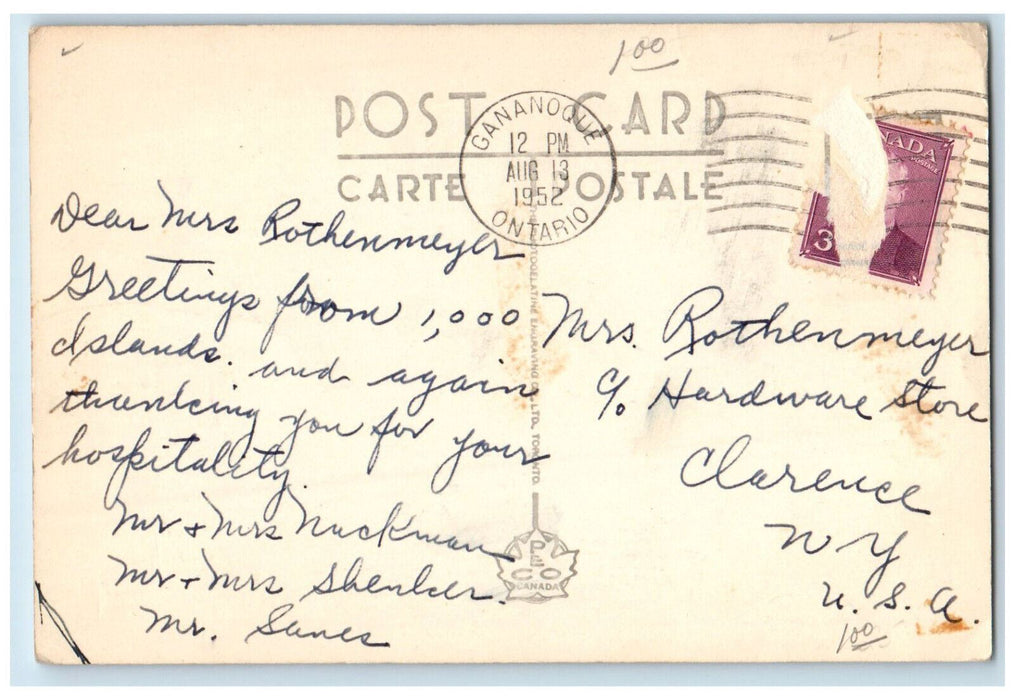 1.00
POST CARD
CARTE POSTALE
GANANOQUE
12 PM
AUG 13
1952
ONTARIO
CANADA
POSTAGE
3
Dear Mrs Rothenmeyer
Greetings from 1,000
Islands. and again
thanking you for your
hospitality.
Mr & Mrs Nuckman
Mr + Mrs Shenker.
Mr. Sanes
PHOTOGELATINE ENGRAVING CO., LTD. TORONTO.
PECO
CANADA
Mrs. Rothenmeyer
c/o Hardware Store
Clarence
N Y
U. S. A.
1.00